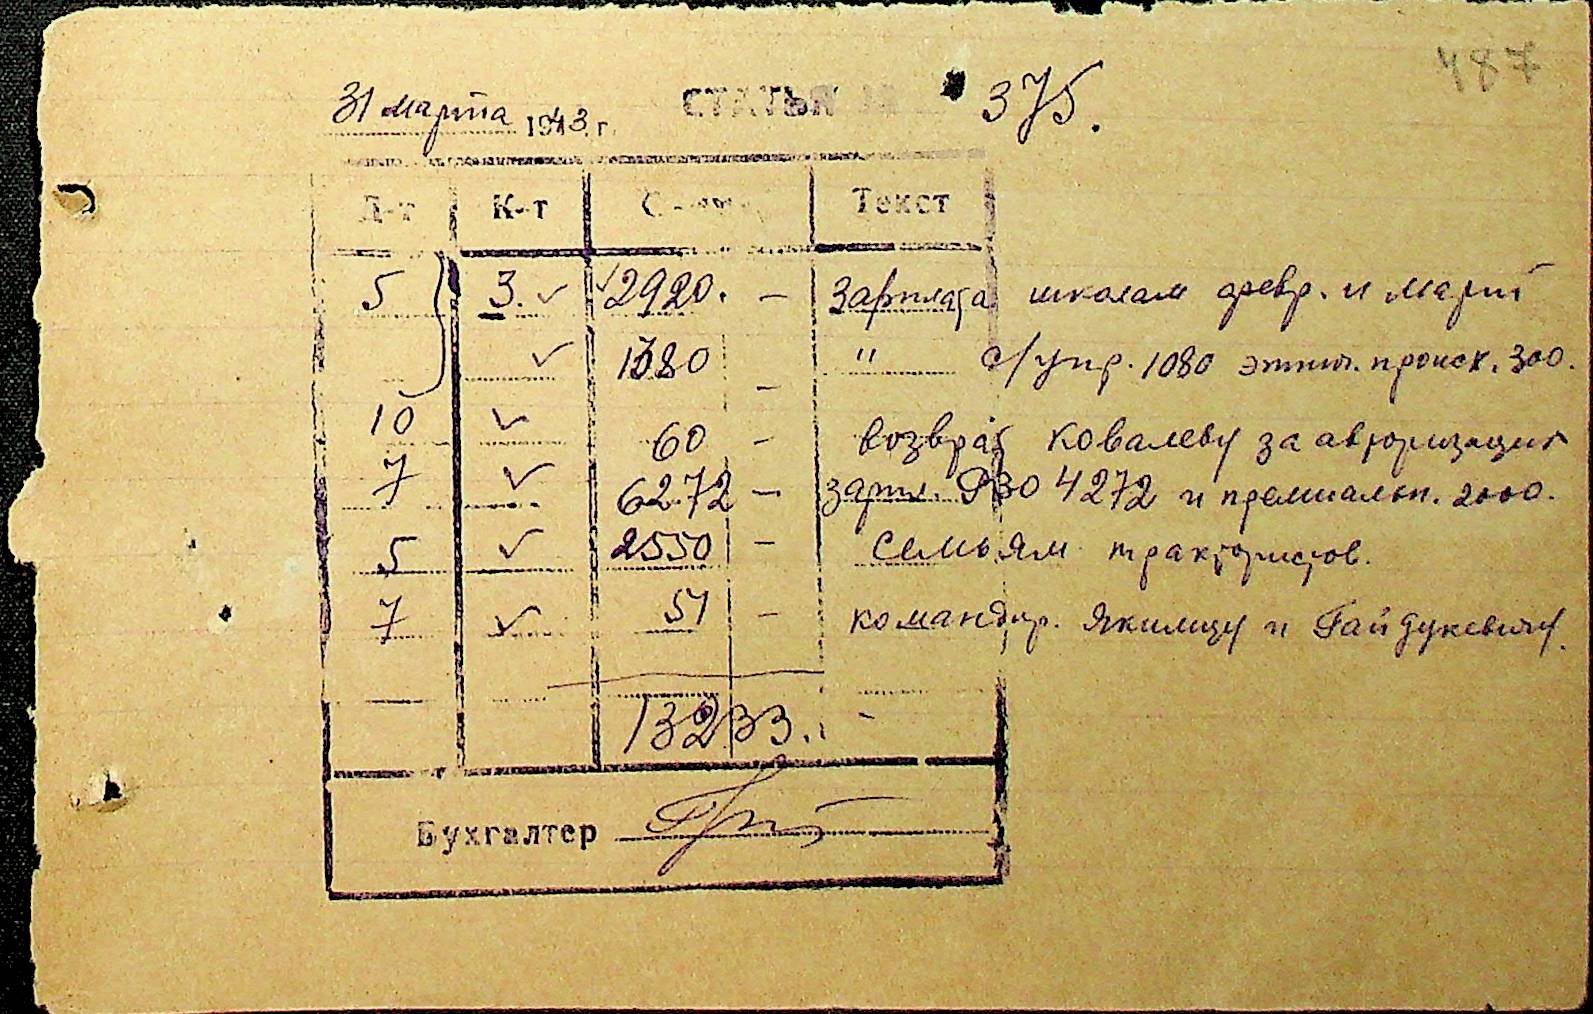 487
31 марта 1943 г. СТАТЬЯ № 375.
Д-т К-т Сумма Текст
5 3. 2920. — Зарплата школам февр. и март
1380 — " с/упр. 1080 этит. происх. 300.
10 60 — возврат Ковалеву за авторизацию
7 6272 — зарпл. РЗО 4272 и премиальн. 2000.
5 2550 — Семьям трактористов.
7 51 — командир. Якимцу и Гайдукевичу.
13233. -
Бухгалтер